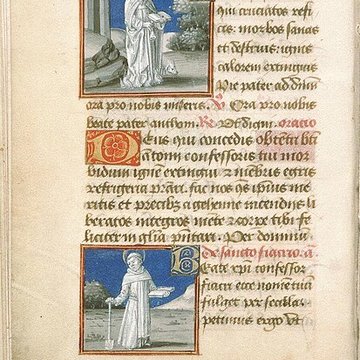 qui cruciatos refi
cis: morbos sanas
et destruis: ignis
calorem extinguis
Pie pater ad dominum
ora pro nobis miseris. V Ora pro nobis
beate pater anthoni. R Ut digni. oratio
Deus qui concedis obtentu bti
Antonii confessoris tui mor
bidum ignem extingui et membris egris
refrigeria prestari. fac nos quesumus ipsius me
ritis et precibus a gehenne incendiis li
beratos integros mente et corpore tibi fe
liciter in gloria presentari. Per dominum
De sancto fiacrio. a
Beate xpi confessor
fiacri ecce nomen tuum
fulget per secula.
petimus ergo ut